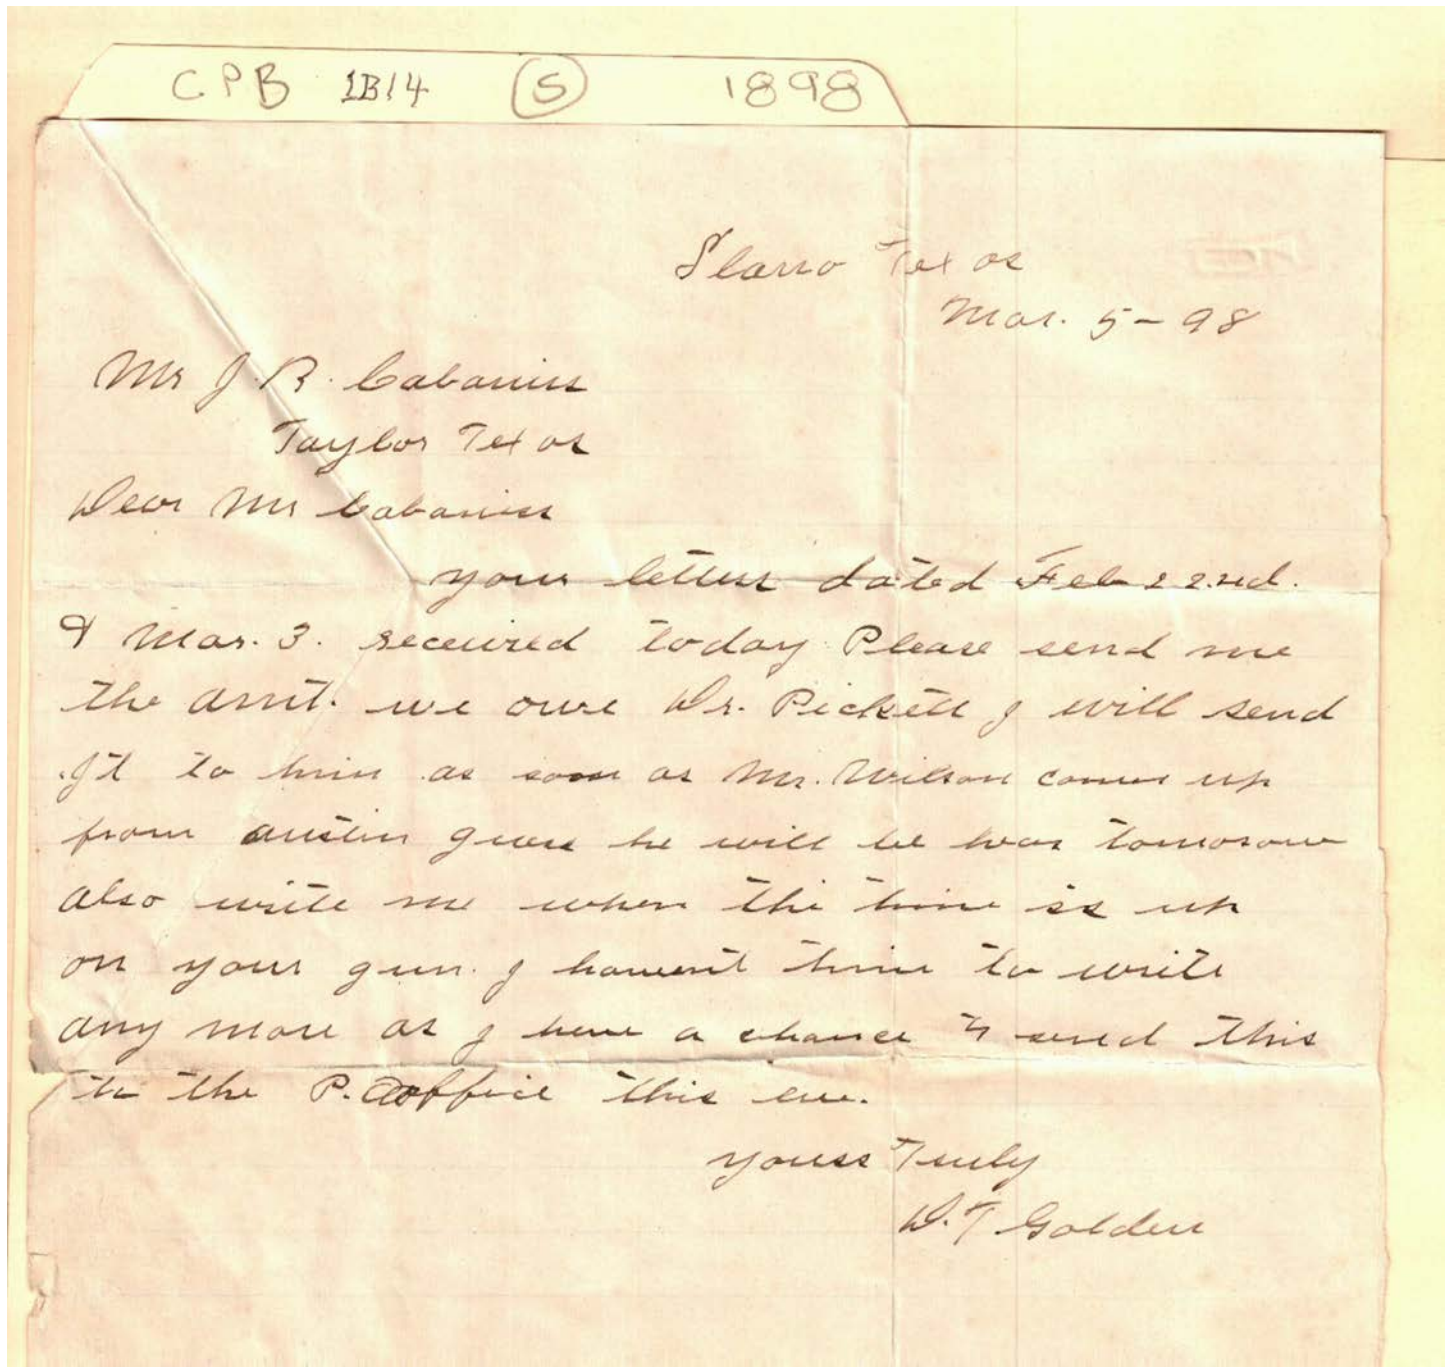 CPB 1B14 (5) 1898
Texas
Mar. 5-98
Mr J. R. Cabaniss
Taylor Texas
Dear Mr Cabaniss
your letters dated Feb 22nd.
& Mar. 3. received today Please send me
the amt. we owe Dr. Pickett I will send
It to him as soon as Mr. Wilson comes up
from austin guess he will be hear tomorow
also write me when the time is up
on your gun. I havent time to write
any more as I have a chance to send this
to the P. Office this eve.
yours Truly
D. T Golden